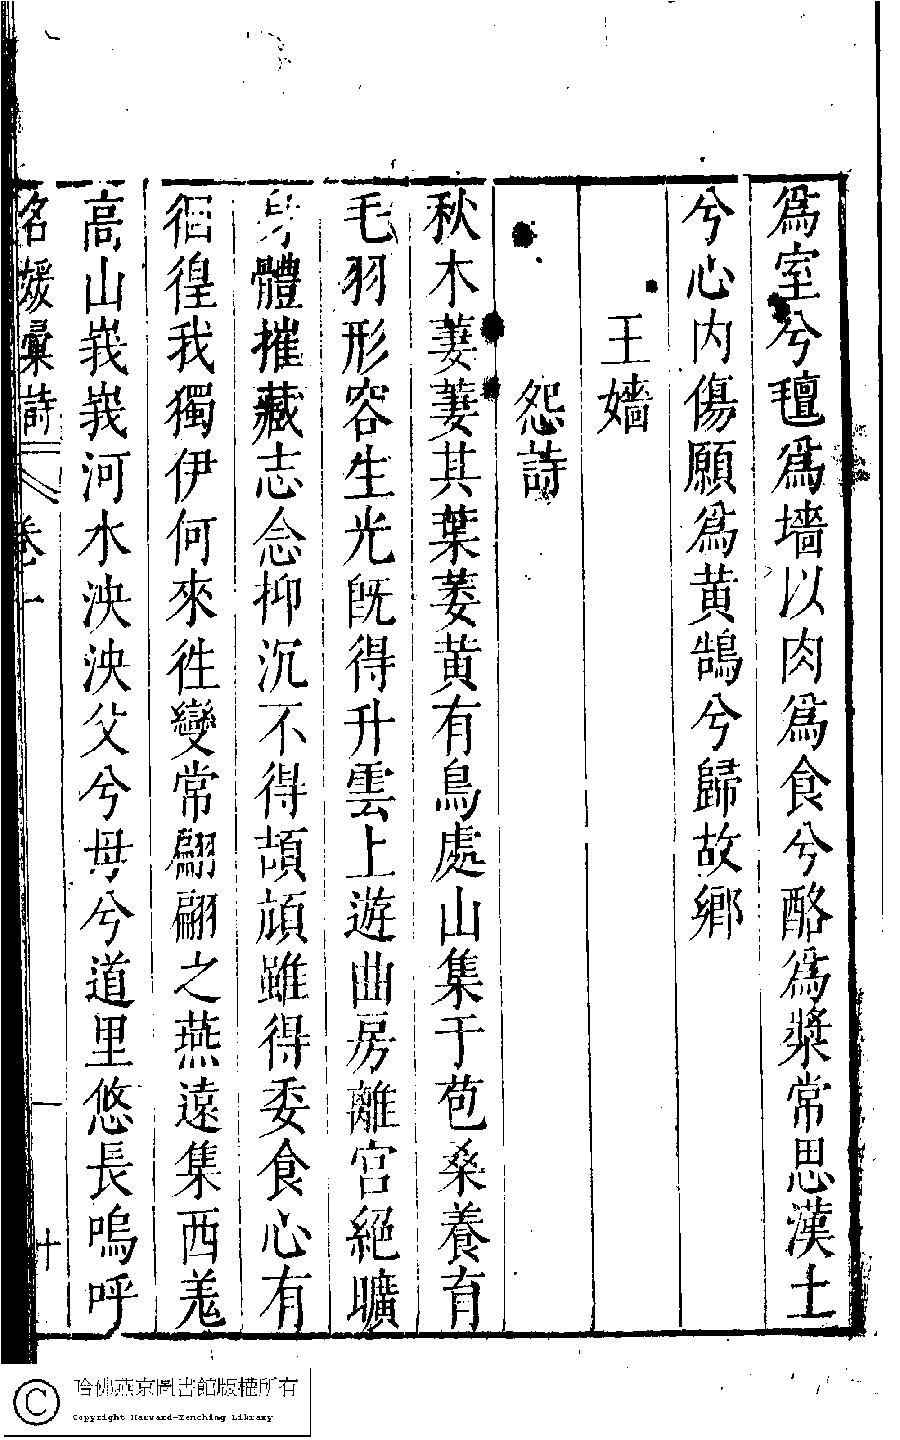 為室兮氊為墻以肉為食兮酪為漿常思漢土
兮心内傷願為黄鵠兮歸故鄉
王嬙
怨詩
秋木萋萋其葉萎黄有鳥處山集于苞桑養育
毛羽形容生光旣得升雲上遊曲房離宫絕曠
身體摧藏志念抑沉不得頡頏雖得委食心有
徊徨我獨伊何來徃變常翩翩之燕遠集西羗
高山峩峩河水泱泱父兮母兮道里悠長嗚呼
名媛彙詩 卷十一 十
哈佛燕京圖書館版權所有
Copyright Harvard-Yenching Library